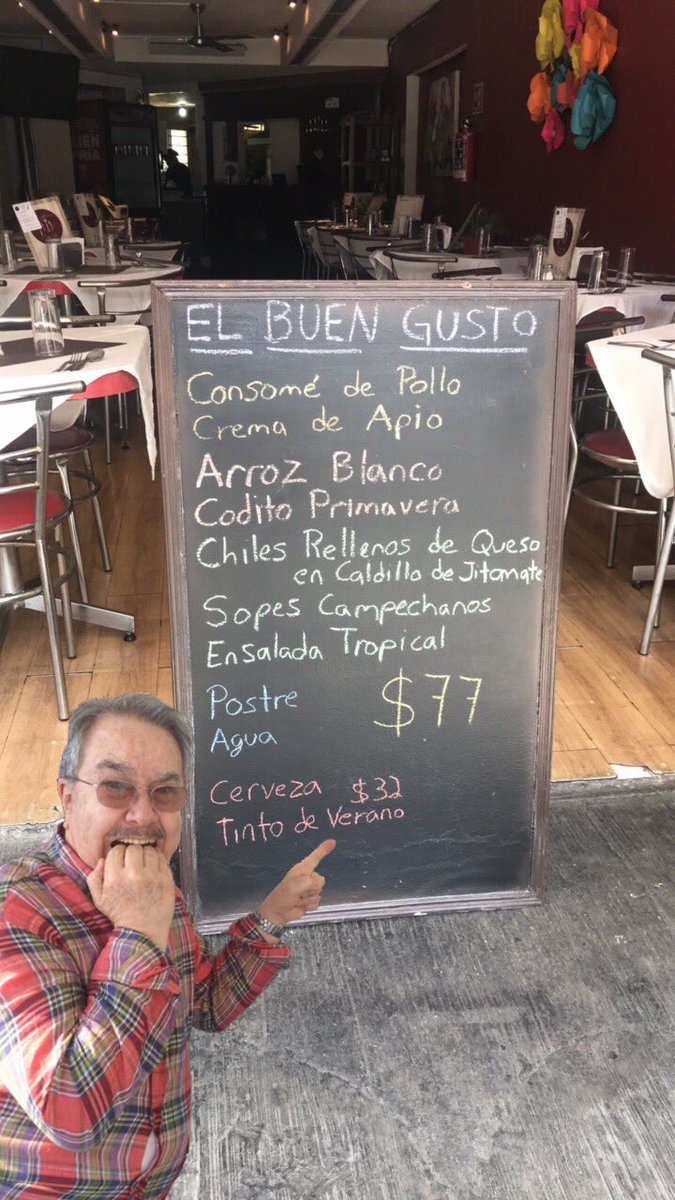 EL BUEN GUSTO
Consomé de Pollo
Crema de Apio
Arroz Blanco
Codito Primavera
Chiles Rellenos de Queso
en Caldillo de Jitomate
Sopes Campechanos
Ensalada Tropical
Postre $77
Agua
Cerveza $32
Tinto de Verano